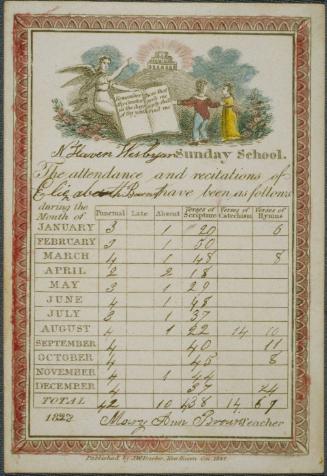 N. Haven Wesleyan Sunday School.
The attendance and recitations of
Elizabeth Brown have been as follows
during the Month of | Punctual | Late | Absent | Verses of Scripture | Verses of Catechism | Verses of Hymns
JANUARY 3 1 20 6
FEBRUARY 3 1 50
MARCH 4 1 48 8
APRIL 2 2 18
MAY 3 1 29
JUNE 4 48
JULY 3 1 37
AUGUST 4 1 22 14 10
SEPTEMBER 4 40 11
OCTOBER 4 45 8
NOVEMBER 4 1 44
DECEMBER 4 37 24
TOTAL 42 10 438 14 67
1827 Mary Ann Brown Teacher
Published by J.W. Barber, New Haven Con.